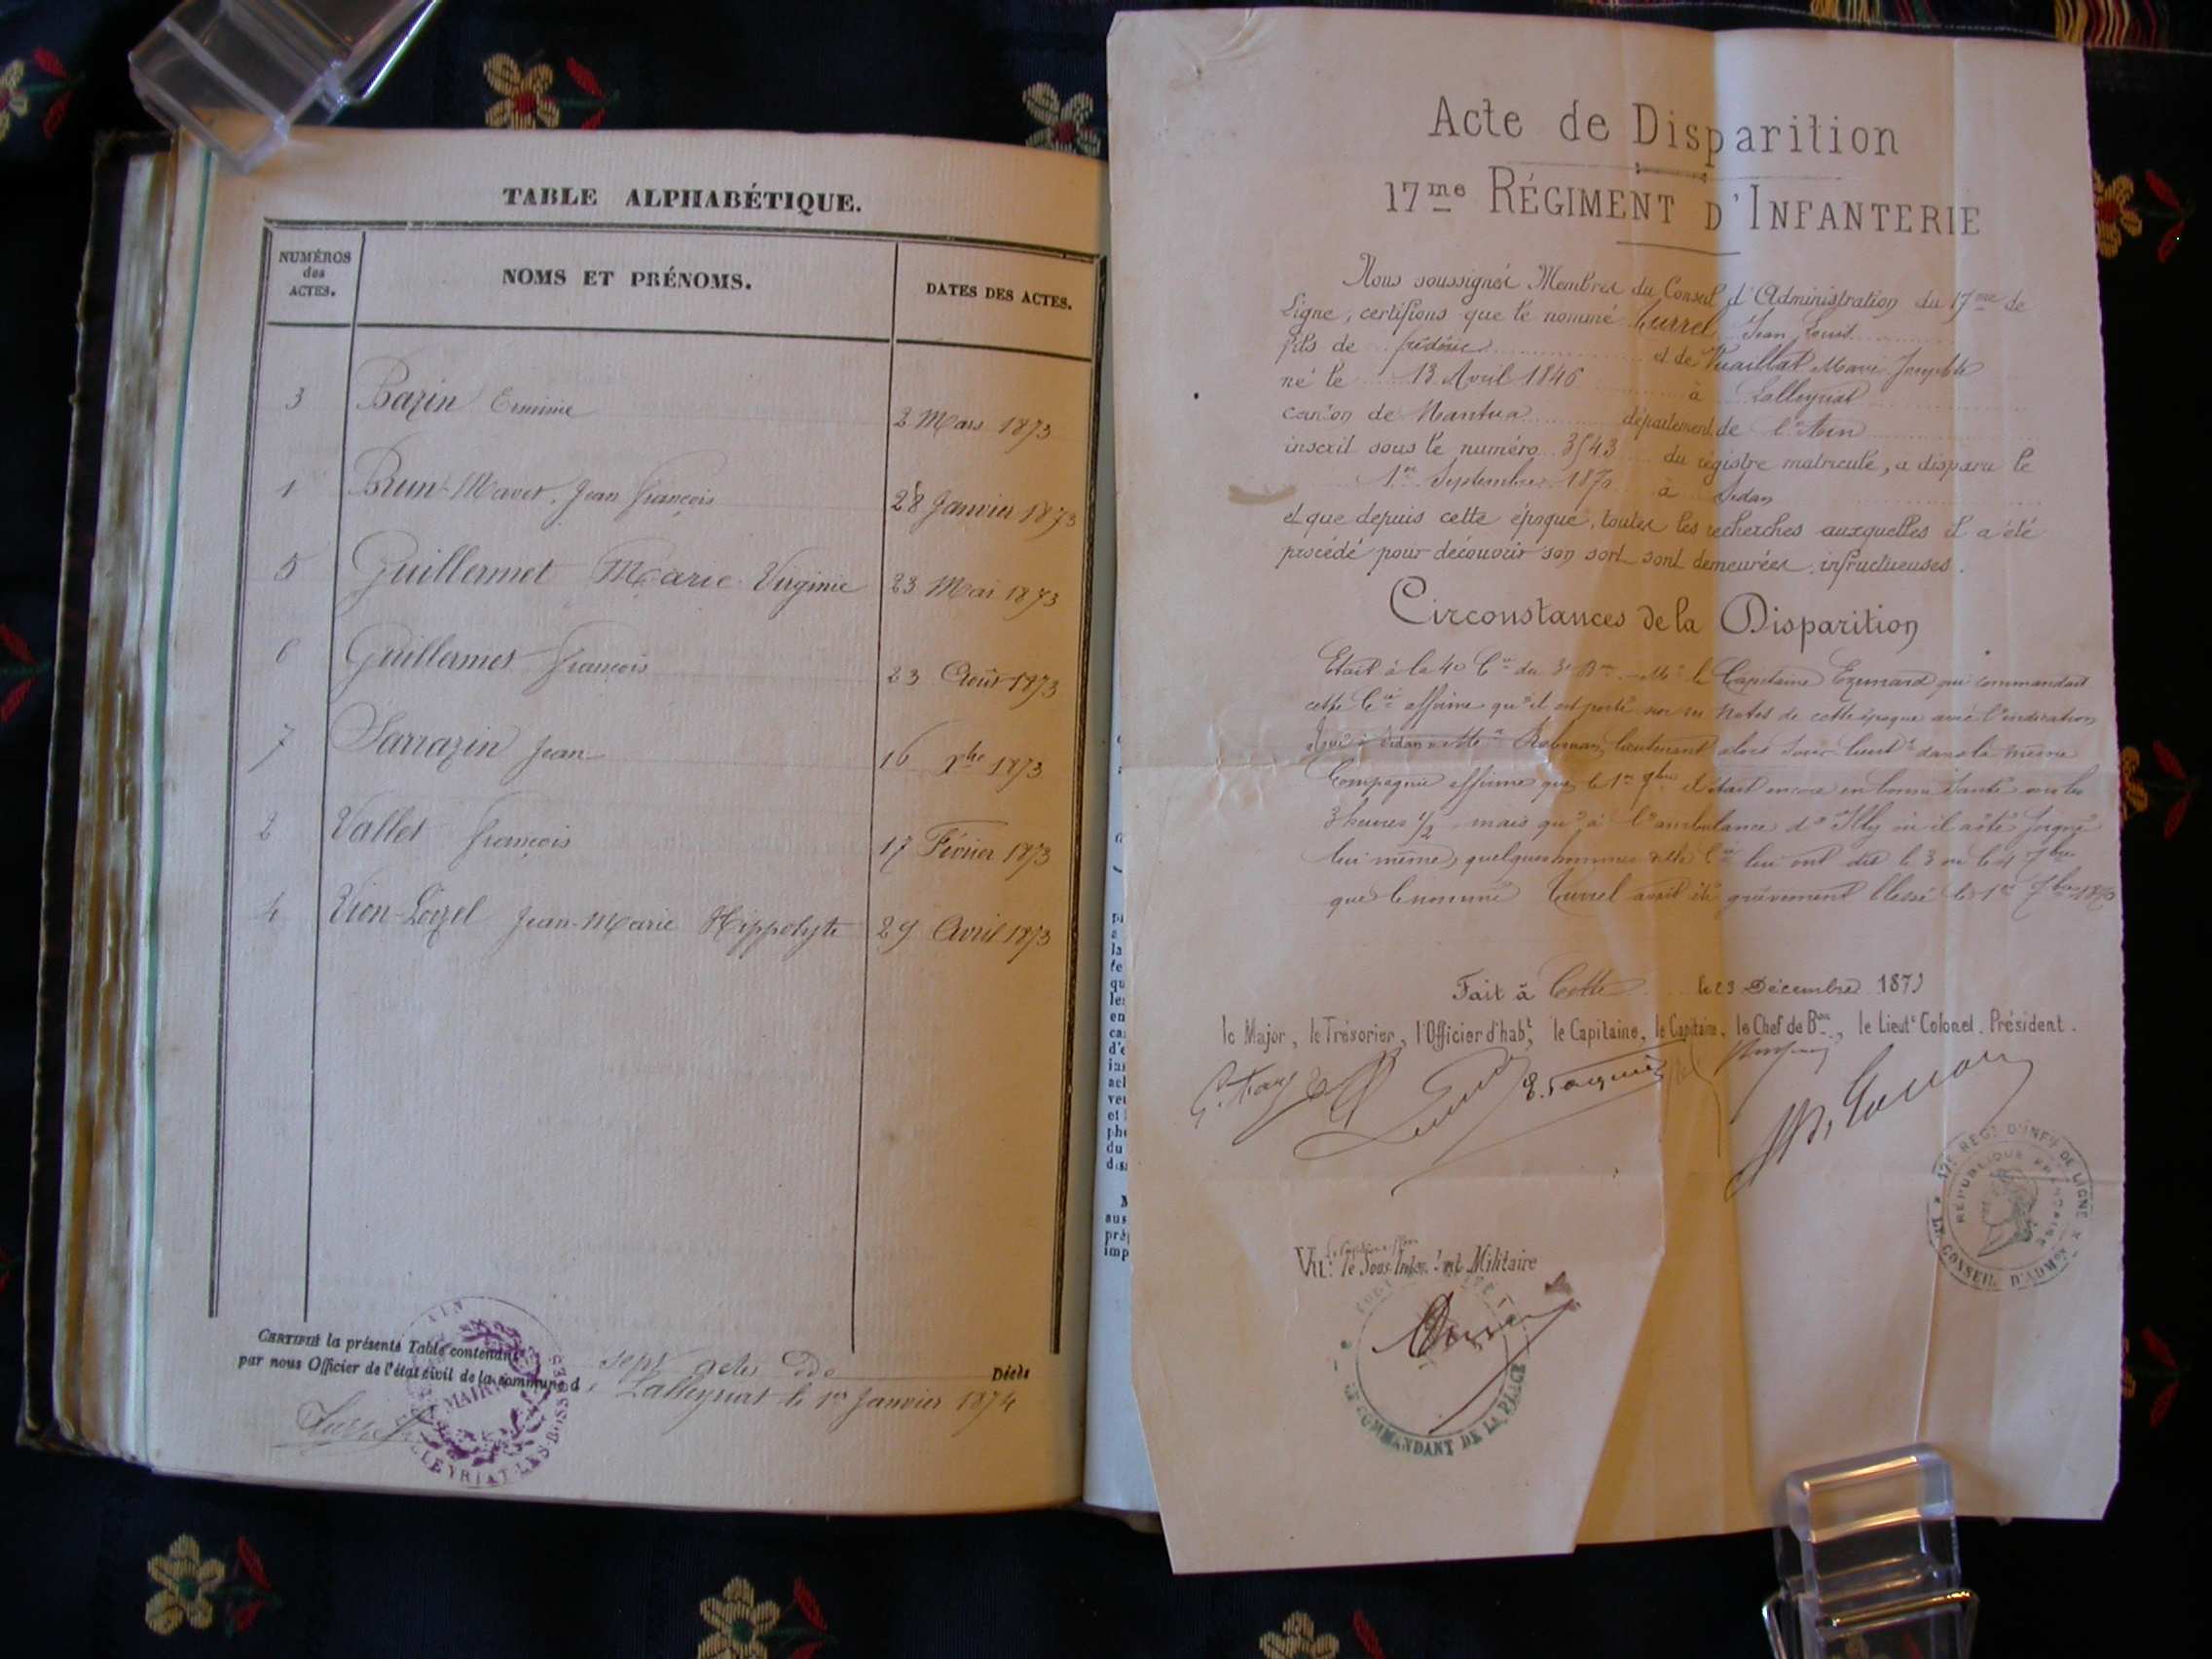 TABLE ALPHABÉTIQUE.
NUMÉROS des ACTES.
NOMS ET PRÉNOMS.
DATES DES ACTES.
3 Bazin Erminie 2 Mars 1873
1 Brun-Mavet, Jean François 28 Janvier 1873
5 Guillermet Marie Virginie 23 Mai 1873
6 Guillermet François 23 Août 1873
7 Sarrazin Jean 16 Xbre 1873
2 Vallet François 17 Février 1873
4 Vion-Loizel Jean-Marie Hippolyte 29 Avril 1873
CERTIFIÉ la présente Table contenant sept actes de Décès
par nous Officier de l'état civil de la commune d Lalleyriat le 1er Janvier 1874
MAIRIE
AIN
LALLEYRIAT LES-BOISSIÈRES
Acte de Disparition
17me RÉGIMENT D'INFANTERIE
Nous soussignés Membres du Conseil d'Administration du 17me de
Ligne, certifions que le nommé Turrel Jean Louis
fils de frédéric et de Vuaillat Marie Josephte
né le 13 Avril 1846 à Lalleyriat
canton de Nantua département de l'Ain
inscrit sous le numéro 3543 du régistre matricule, a disparu le
1er Septembre 1870 à Sedan
et que depuis cette époque, toutes les recherches auxquelles il a été
procédé pour découvrir son sort sont demeurées infructueuses.
Circonstances de la Disparition
Etait à la 4e Cie du 3e Bon. Mr le Capitaine qui commandait
cette Cie affirme qu'il est porté sur ses notes de cette époque avec l'indication
Sedan lieutenant alors sous-lieutt dans la même
Compagnie affirme que le 1er 7bre il était encore en bonne santé vers les
3 heures 1/2, mais qu'à l'ambulance d'Illy où il a été soigné
lui même, quelques hommes de la Cie lui ont dit le 3 ou le 4 7bre
que le nommé Turrel avait été grièvement blessé le 1er 7bre 1870
Fait à Cette le 23 Décembre 187
le Major, le Trésorier, l'Officier d'habt, le Capitaine, le Capitaine, le Chef de Bon, le Lieutt Colonel. Président.
17E REGT D'INFIE DE LIGNE
RÉPUBLIQUE FRANÇAISE
LE CONSEIL D'ADMON
Vu: le Sous-Intendant Militaire
LE COMMANDANT DE LA PLACE